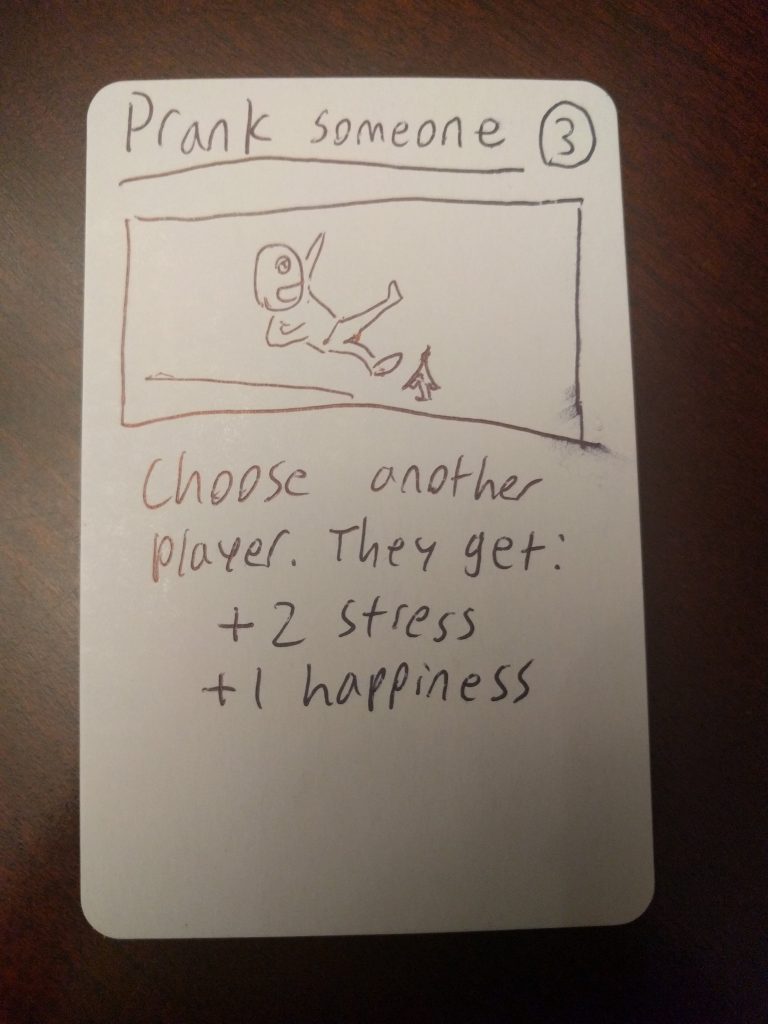 Prank someone 3
Choose another
player. They get:
+2 stress
+1 happiness